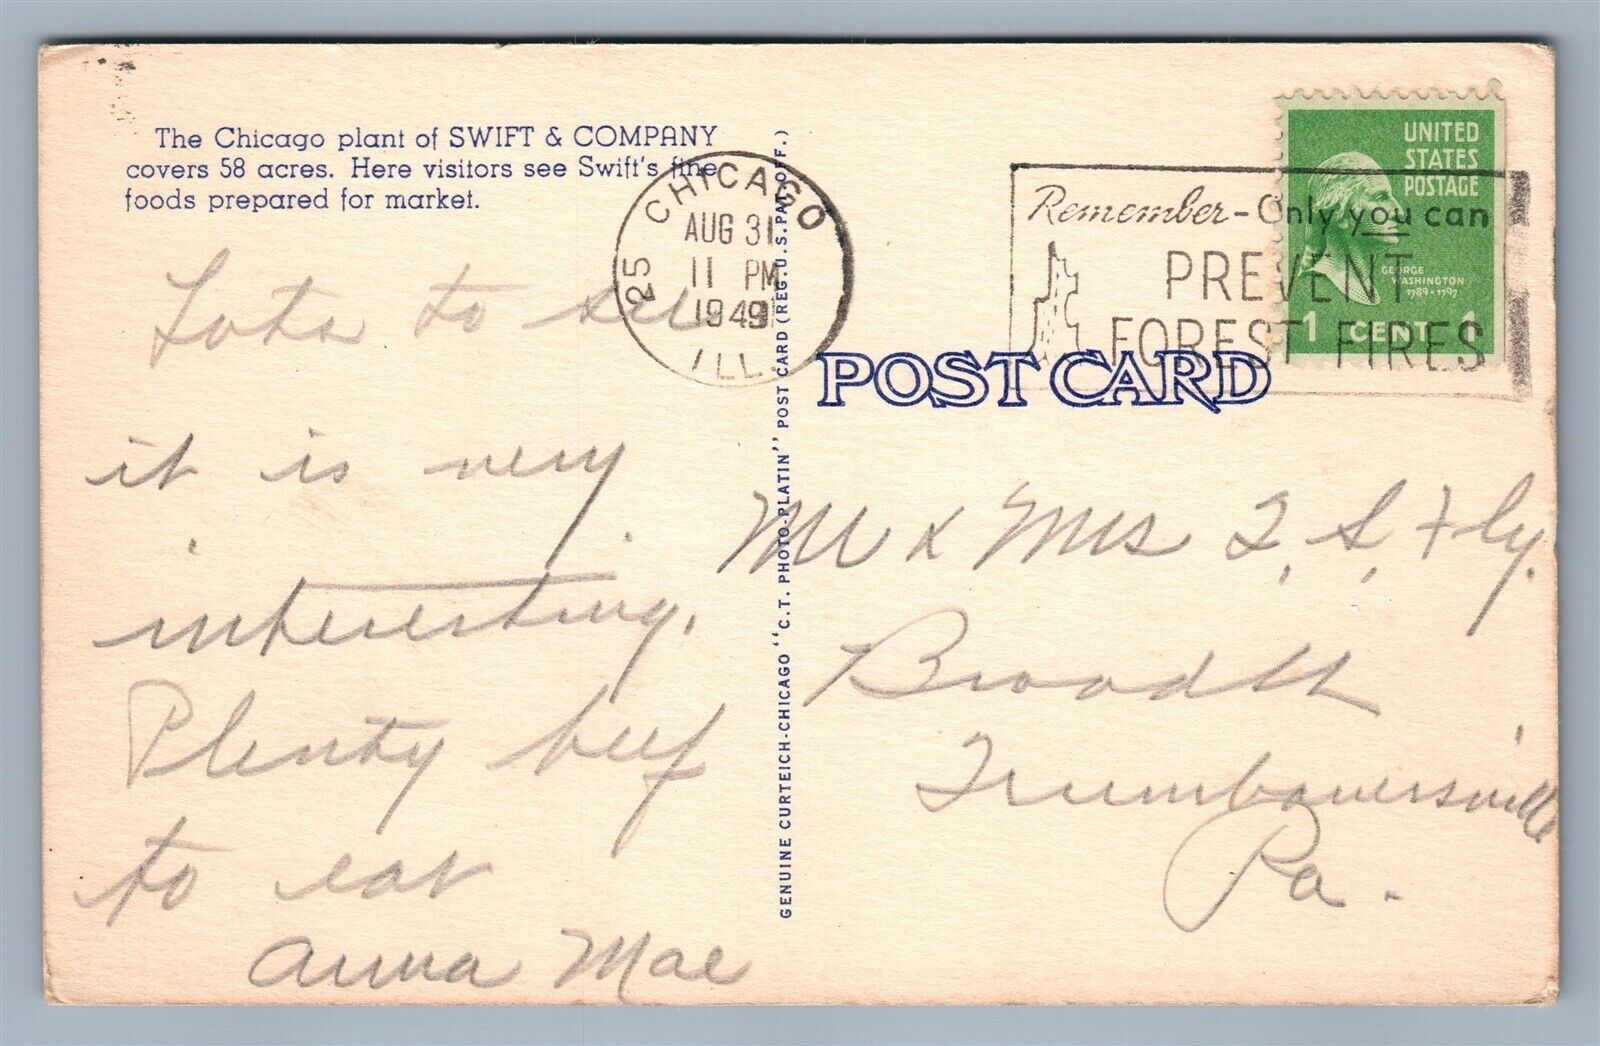 The Chicago plant of SWIFT & COMPANY
covers 58 acres. Here visitors see Swift's fine
foods prepared for market.
CHICAGO
25
AUG 31
11 PM
1949
ILL.
Remember - Only you can
PREVENT
FOREST FIRES
UNITED
STATES
POSTAGE
GEORGE
WASHINGTON
1789-1797
1 CENT 1
POST CARD
GENUINE CURTEICH-CHICAGO "C.T. PHOTO-PLATIN" POST CARD (REG. U.S. PAT. OFF.)
Lots to see
it is very
interesting.
Plenty beef
to eat
Anna Mae
Mr & Mrs
Broad St
Trumbauersville
Pa.